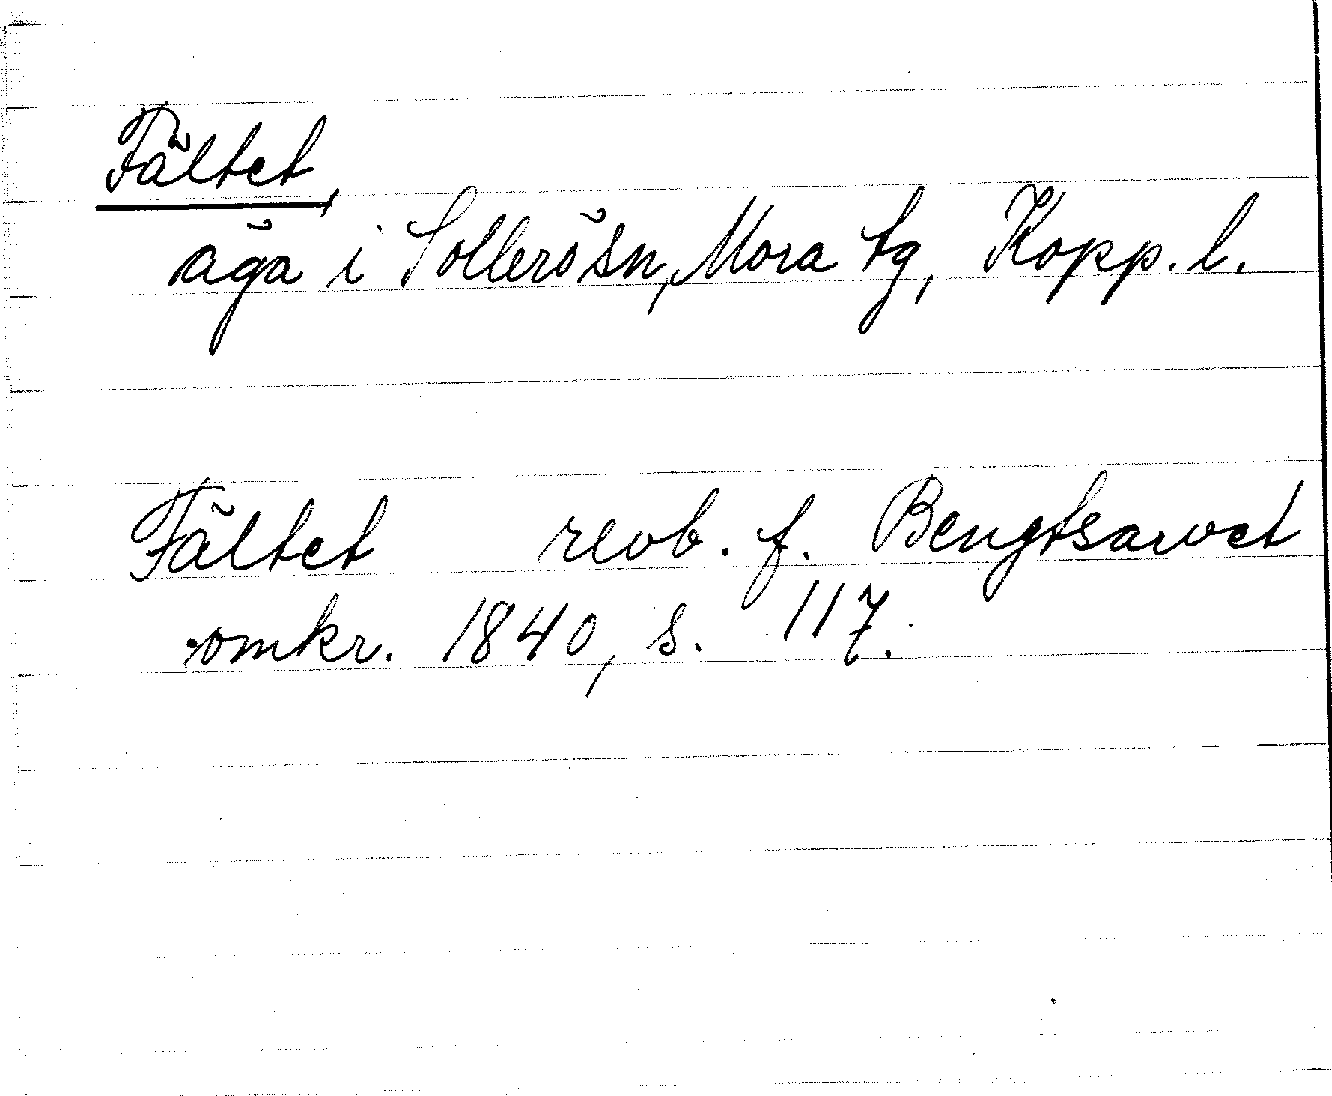 Fältet,
äga i Sollerö sn, Mora tg, Kopp. l.
Fältet revb. f. Bengtsarvet
omkr. 1840, s. 117.